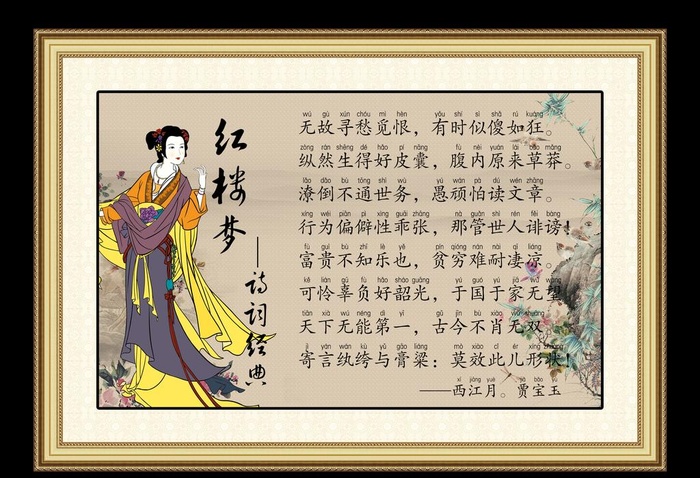 红楼梦
——诗词经典
wú gù xún chóu mì hèn yǒu shí sì shǎ rú kuáng
无故寻愁觅恨，有时似傻如狂。
zòng rán shēng dé hǎo pí náng fù nèi yuán lái cǎo mǎng
纵然生得好皮囊，腹内原来草莽。
lǎo dǎo bù tōng shì wù yú wán pà dú wén zhāng
潦倒不通世务，愚顽怕读文章。
xíng wéi piān pì xìng guāi zhāng nà guǎn shì rén fěi bàng
行为偏僻性乖张，那管世人诽谤！
fù guì bù zhī lè yě pín qióng nán nài qī liáng
富贵不知乐也，贫穷难耐凄凉。
kě lián gū fù hǎo sháo guāng yú guó yú jiā wú wàng
可怜辜负好韶光，于国于家无望
tiān xià wú néng dì yī gǔ jīn bù xiào wú shuāng
天下无能第一，古今不肖无双
jì yán wán kù yǔ gāo liáng mò xiào cǐ ér xíng zhuàng
寄言纨绔与膏粱：莫效此儿形状！
xī jiāng yuè jiǎ bǎo yù
——西江月。贾宝玉